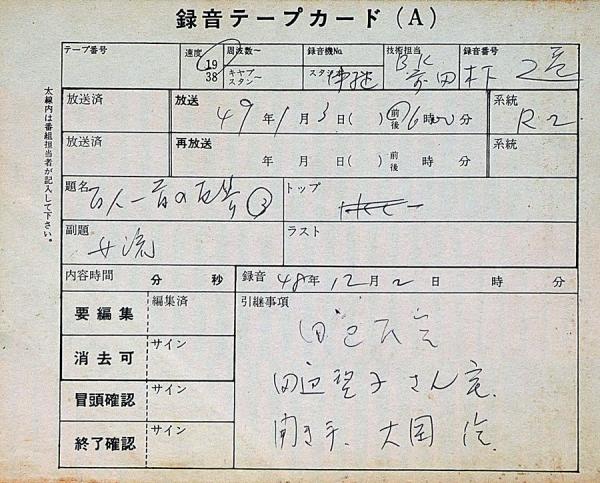 録音テープカード(A)
テープ番号
速度 19 38
周波数~
キャプスタン~
録音機No.
スタジオ
技術担当 BK 前田
録音番号
太線内は番組担当者が記入して下さい。
放送済
放送 49年1月3日( ) 前後 6時00分
系統 R2
放送済
再放送 年 月 日( ) 前後 時 分
系統
題名 百人一首の 3
トップ
副題 女流
ラスト
内容時間 分 秒
録音 48年12月2日 時 分
要編集
編集済
引継事項
消去可
サイン
田辺
冒頭確認
サイン
田辺聖子さん宅.
終了確認
サイン
聞き手. 大国